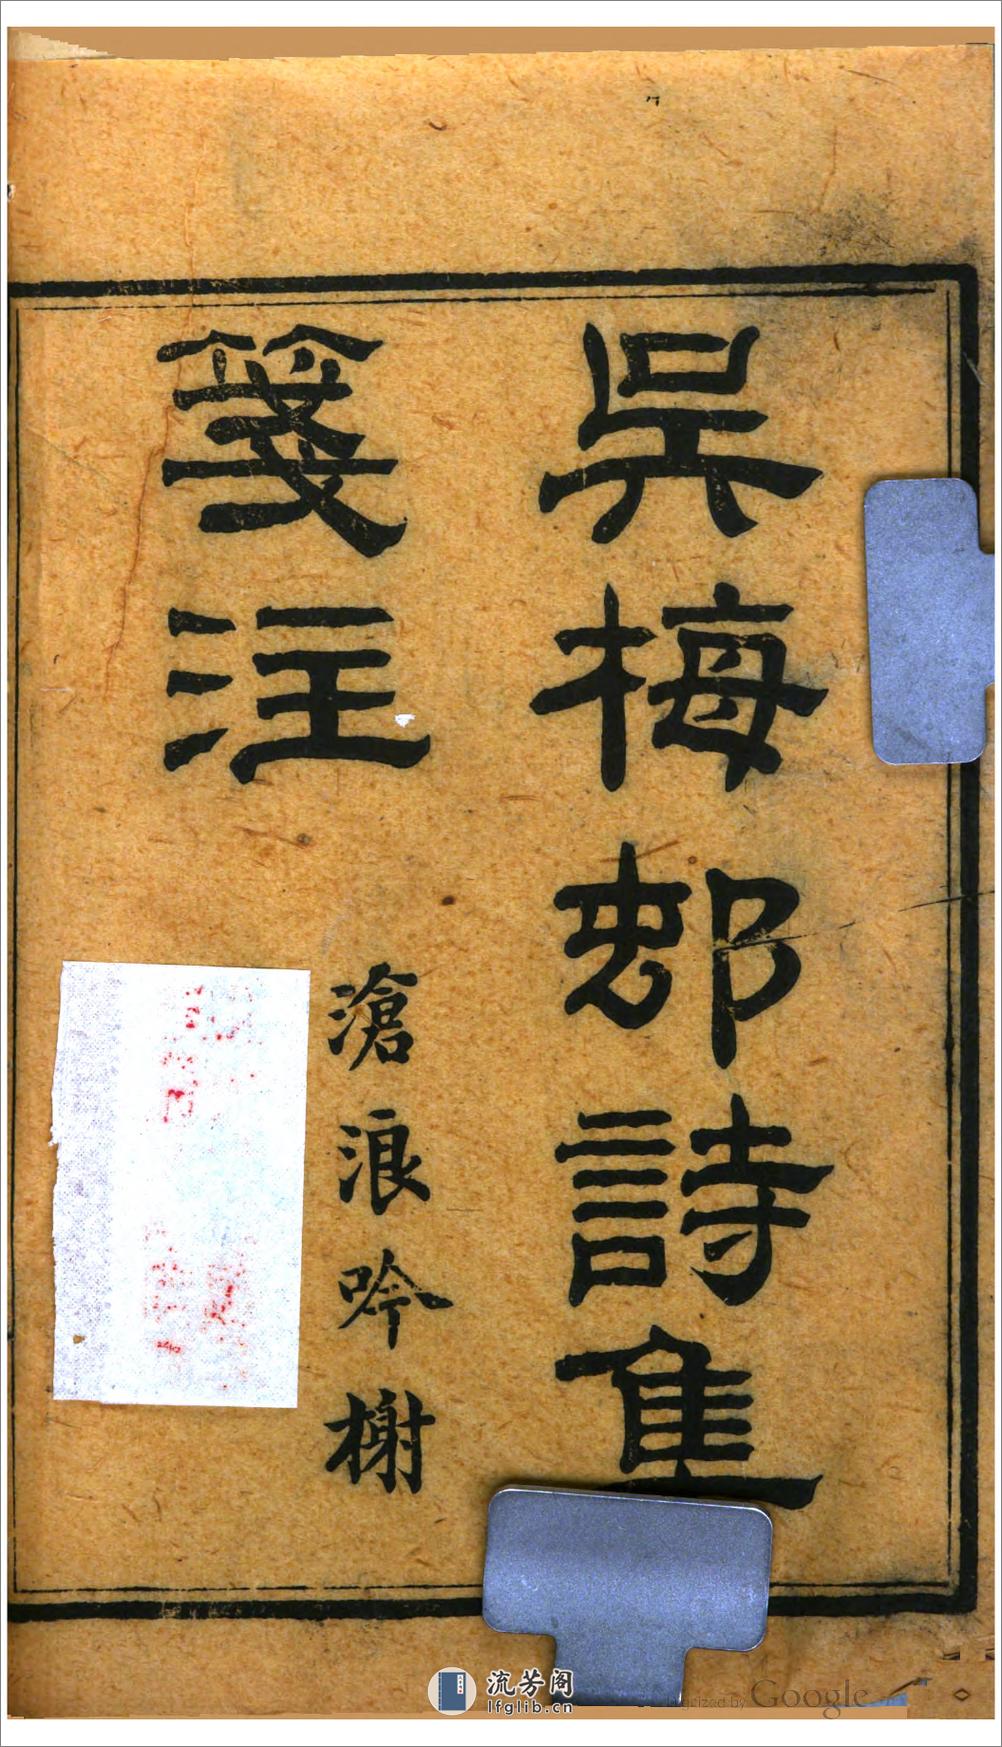 吳梅邨詩集
箋注
滄浪吟榭
流芳阁
lfglib.cn
Digitized by Google